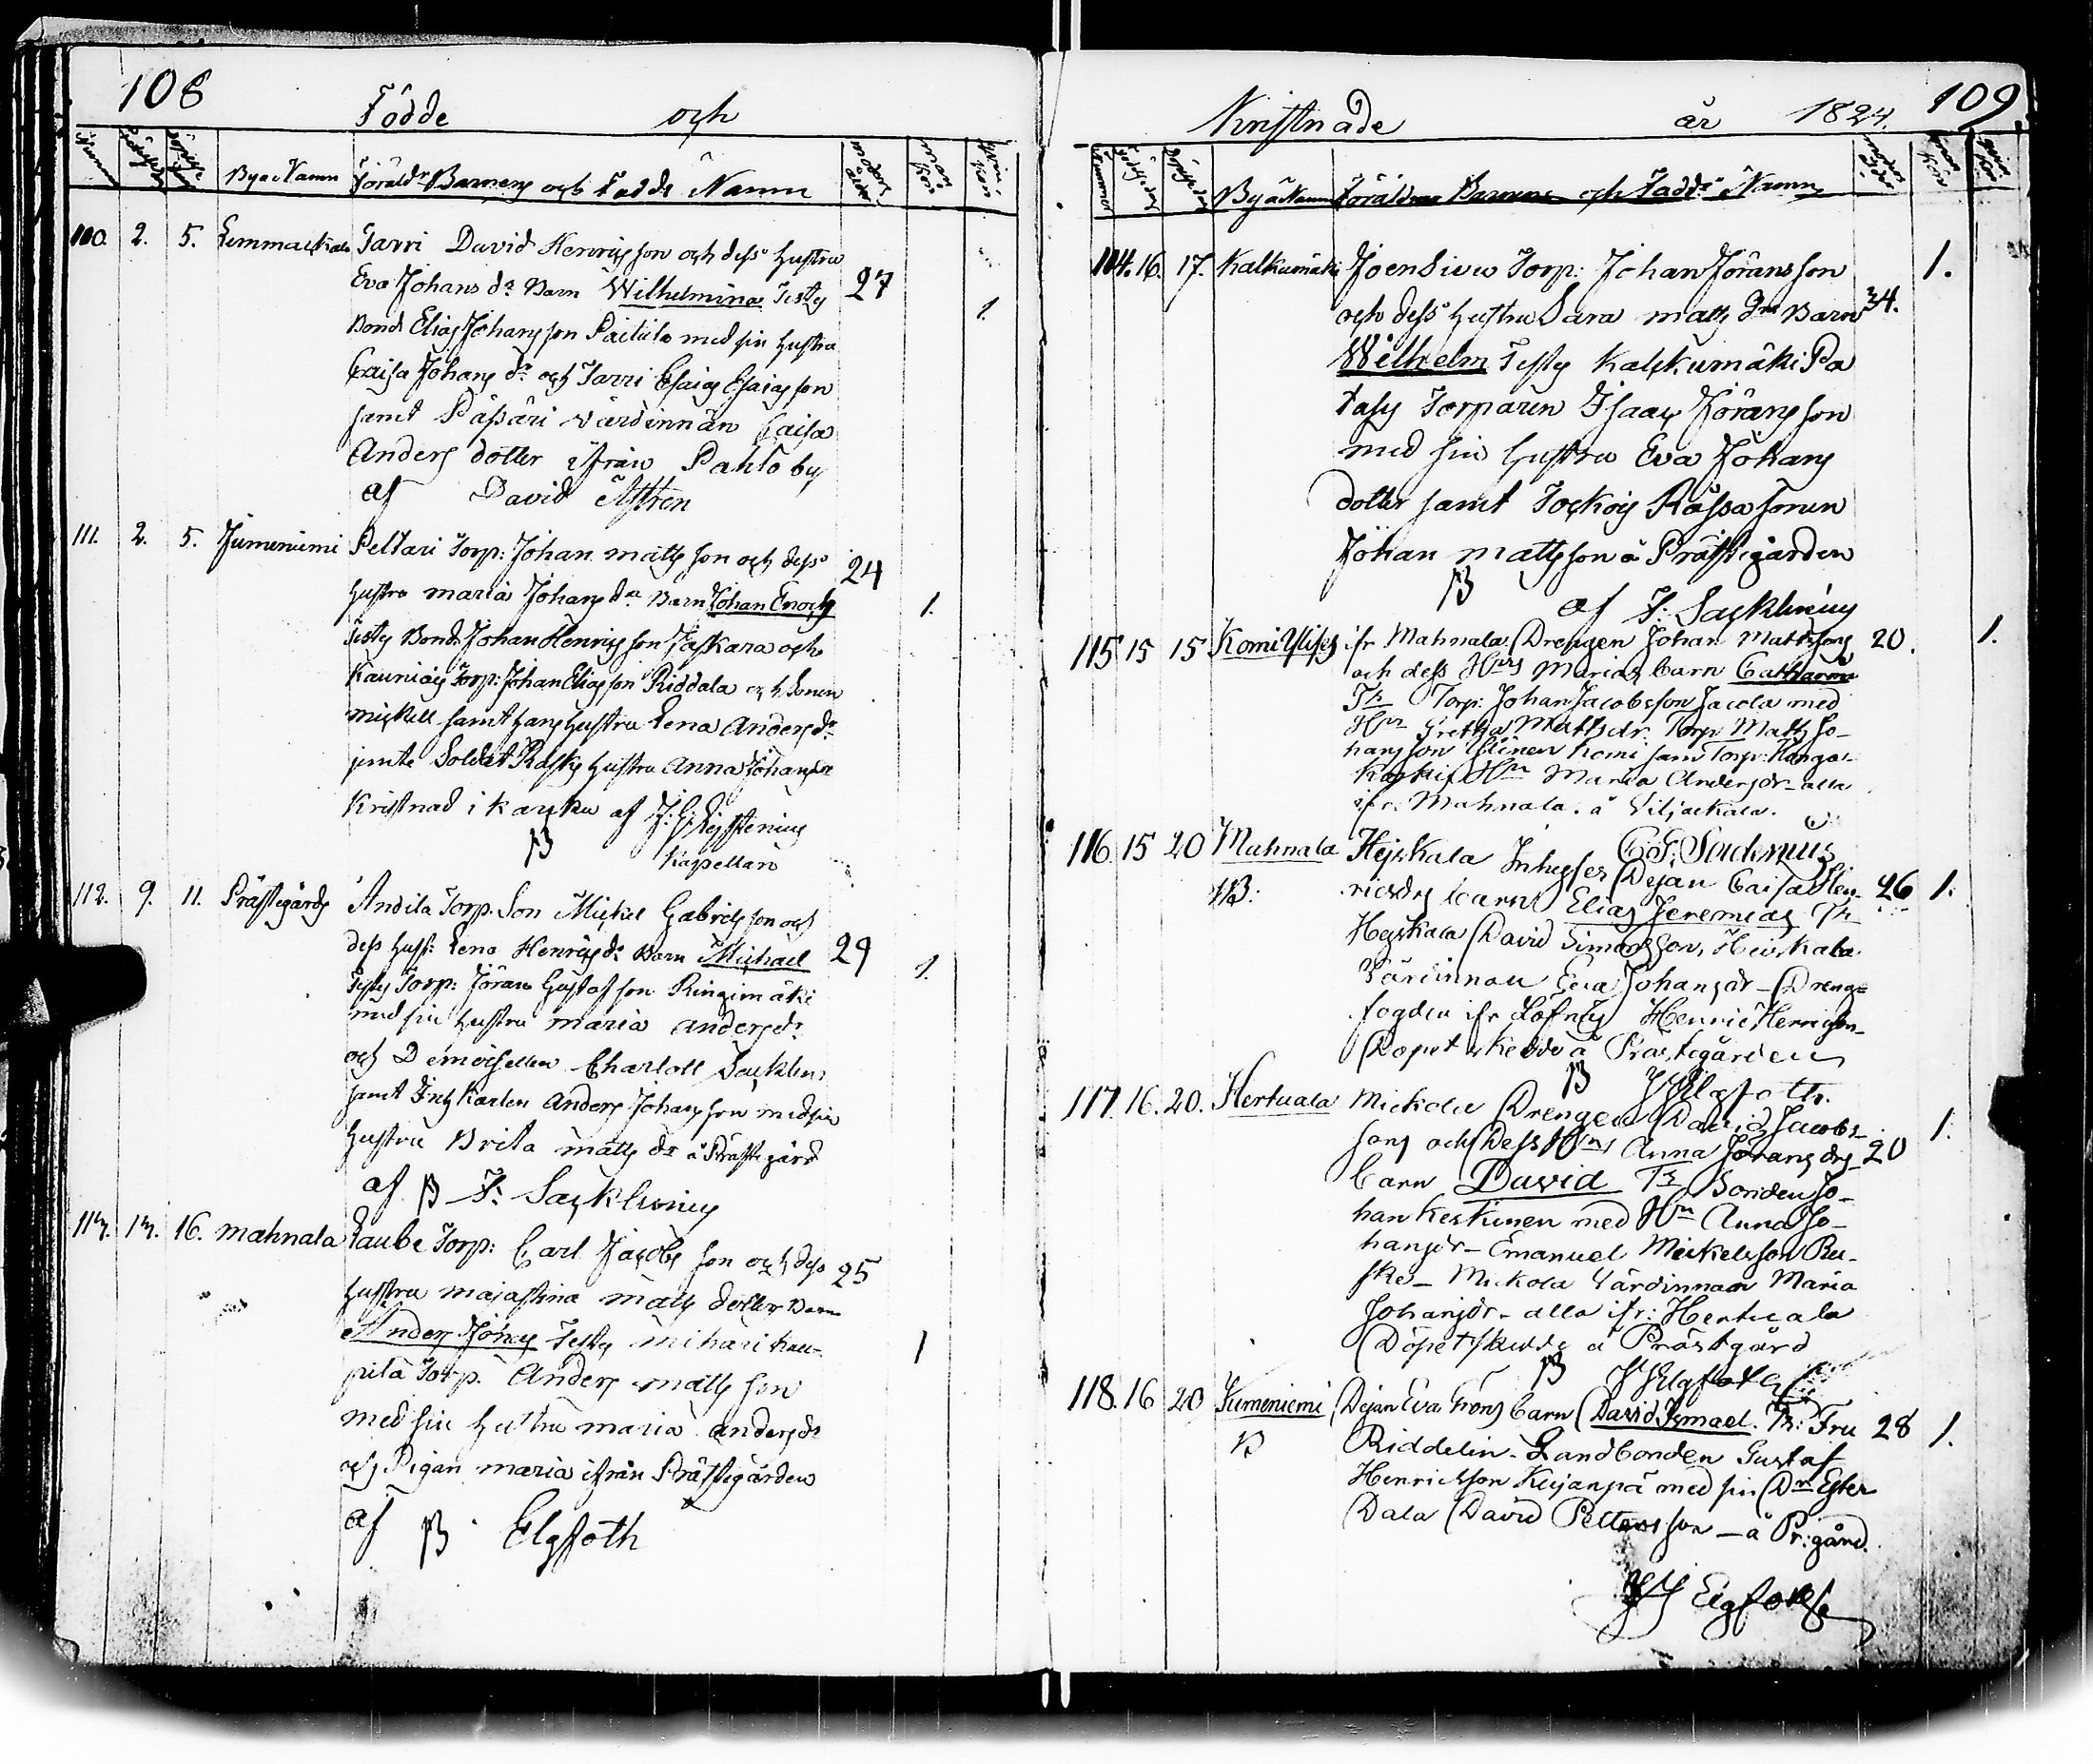 108
Födde och
Nummer
Byae Namn Föräldr Barnens och Fadd: Namn
moders ålder
man kön
qvin kön
110. 2. 5. Lemmackala Jarri David Henricsson och dess hustru
Eva Johans dr Barn Wilhelmina Testes 27
Bond: Elias Johansson Paitula med sin hustru 1.
Caisa Johans dr och Jarri Esaias Esaias son
samt Päpäri värdinnan Caisa
Anders dotter ifrån Pahto by
af David Aftren
111. 2. 5. Jumeniemi Peltari Torp: Johan matts son och dess 24
hustru maria Johans dr Barn Johan Enoch 1.
Testes Bond: Johan Henricsson Jaskara och
Kauniais Torp: Johan Eliasson Riddala och Sonen
mickell samt hans hustru Lena Anders dr
jemte Soldat Rasks hustru Anna Johans dr
Kristnad i kayku af
Kapellan
112. 9. 11. Prästegårds Andila Torp. Son Mickel Gabrielsson och
dess hust: Lena Henrics dr Barn Michael 29
Testes Torp: Jöran Gustafsson Ringimäki 1.
med sin hustru maria anders dr
och Demoisellen Charlott Sacklen:
samt Inhs Karlen Anders Johansson med sin
hustru Brita matts dr å Prästegård
af F: Sacklinius
113. 13. 16. mahnala Laube Torp: Carl Jacobs son och dess 25
hustru majastina matts dotters Barn
Anders Johan Testes mihari kau-
pila Torp. Anders matts son 1
med sin hustru maria anders dr
och Pigan maria ifrån Prästegården
af Elgfoth
Kristnade år 1824. 109
Nummer
By a Namn Föräldrar Barnens och Fadd: Namn
114. 16. 17. Kalkumäki Joensivu Torp: Johan Göransson 1.
och dess hustru Sara matts dr Barn 34.
Wilhelm Testes Kalkumäki Pa
tasy Torparen Isaac Jöransson
med sin hustru Eva Johans
dotter samt Jockois Råssa sonen
Johan mattsson å Prästegården
af F: Sacklinius
115 15 15 Komi ifr Mahnala Drengen Johan Mattssons 20. 1.
och dess Hus Marias barn Catharina
Ts Torp: Johan Jacobsson Jacola med
Hu Gretha Mattsdr. Torp Matts Jo-
hansson Ylinen Komi samt Torp: Hanga-
koski Hu Maria Andersdr – alla
ifr. Mahnala. å Viljackala.
116 15 20 Mahnala Hejskala Inhyses Dejan Caisa Hen- 26 1.
ricsdrs barn Elias Jeremias Ts
Hejskala David Simonsson, Heiskala
Värdinnan Eva Johansdr – Drenge
fogden ifr Löfnäs Henric Henricsson –
Dopet skedde å Prästegården
J J Elgfoth.
117. 16. 20. Hertuala Mickola Drengen David Jacobs- 1.
sons och Dess Hus Anna Jöransdrs 20
barn David Ts Bonden Jo-
han Keskinen med Hu Anna Jo-
hansdr – Emanuel Mickelsson Ru-
ske – Mickola Värdinnan Maria
Johansdr – alla ifr: Hertuala
Döpet skedde å Prästgård
J J Elgfoth
118. 16 20 Jumeniemi Dejan Eva Gröns barn David Ismael. Ts: Fru 28 1.
Riddelin – Landbonden Gustaf
Henricsson Kujanpä med sin Dr Ester
Dala David Pettersson – å Pr: gård.
J J Elgfoth